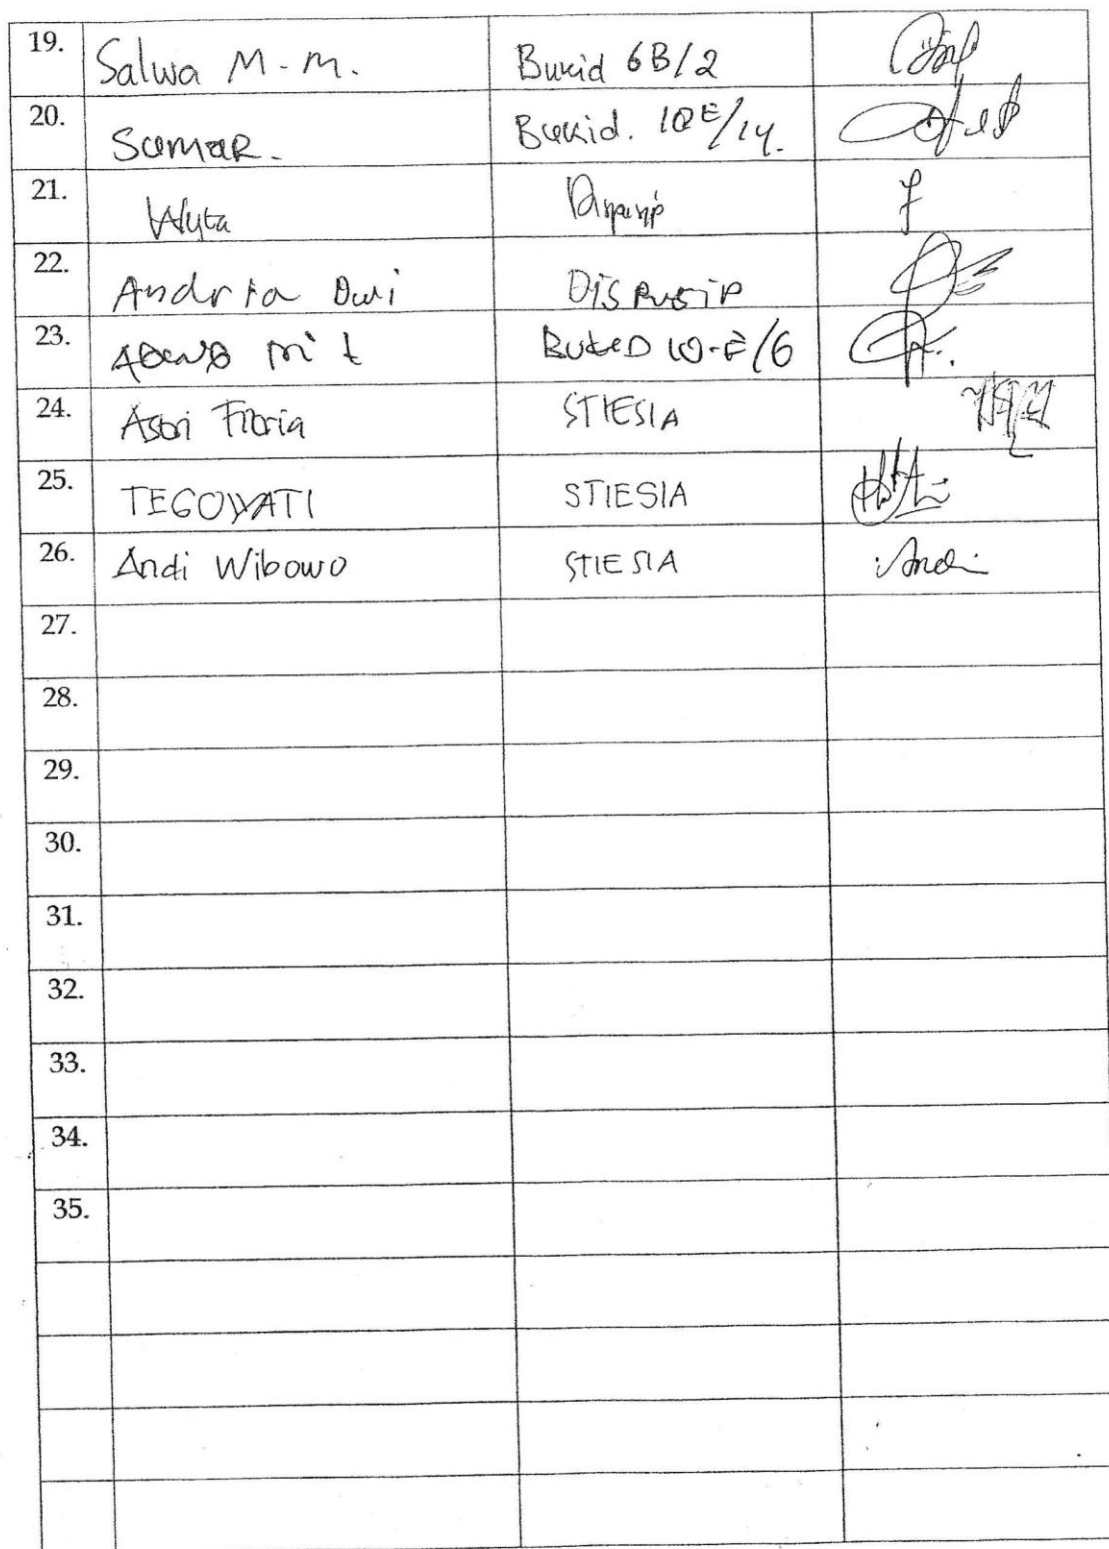 19. Salwa M-M. Bukid 6B/2
20. Sumar. Bukid. 10E/14.
21. Wyta
22. Andria Dwi Dispusip
23. 10-E/6
24. Asbri Fitria STIESIA
25. TEGOWATI STIESIA
26. Andi Wibowo STIESIA Andi
27.
28.
29.
30.
31.
32.
33.
34.
35.